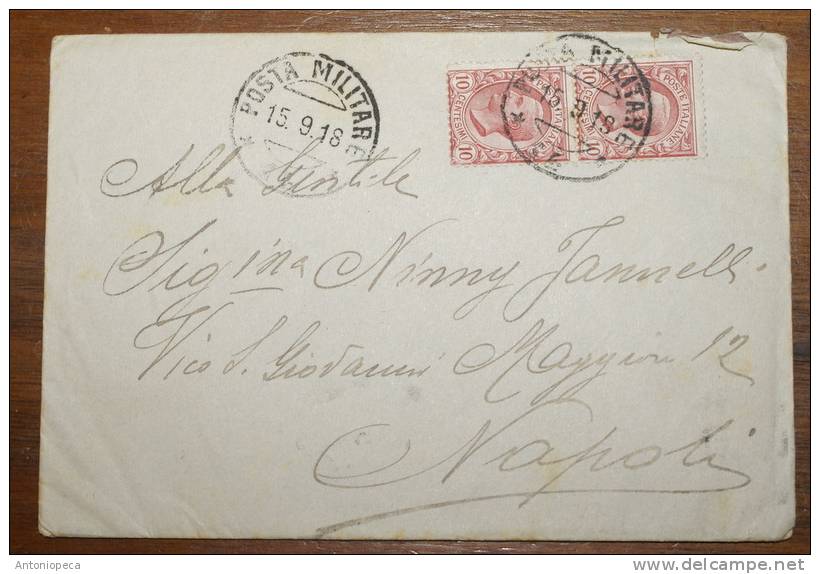 POSTA MILITARE
15.9.18
POSTA MILITARE
15.9.18
10 CENTESIMI 10
POSTE ITALIANE
10
POSTE ITALIANE
Alla Gentile
Sig ina Ninny Jannelli
Vico S. Giovanni Maggiore 12
Napoli
Antoniopeca
delcampe.net